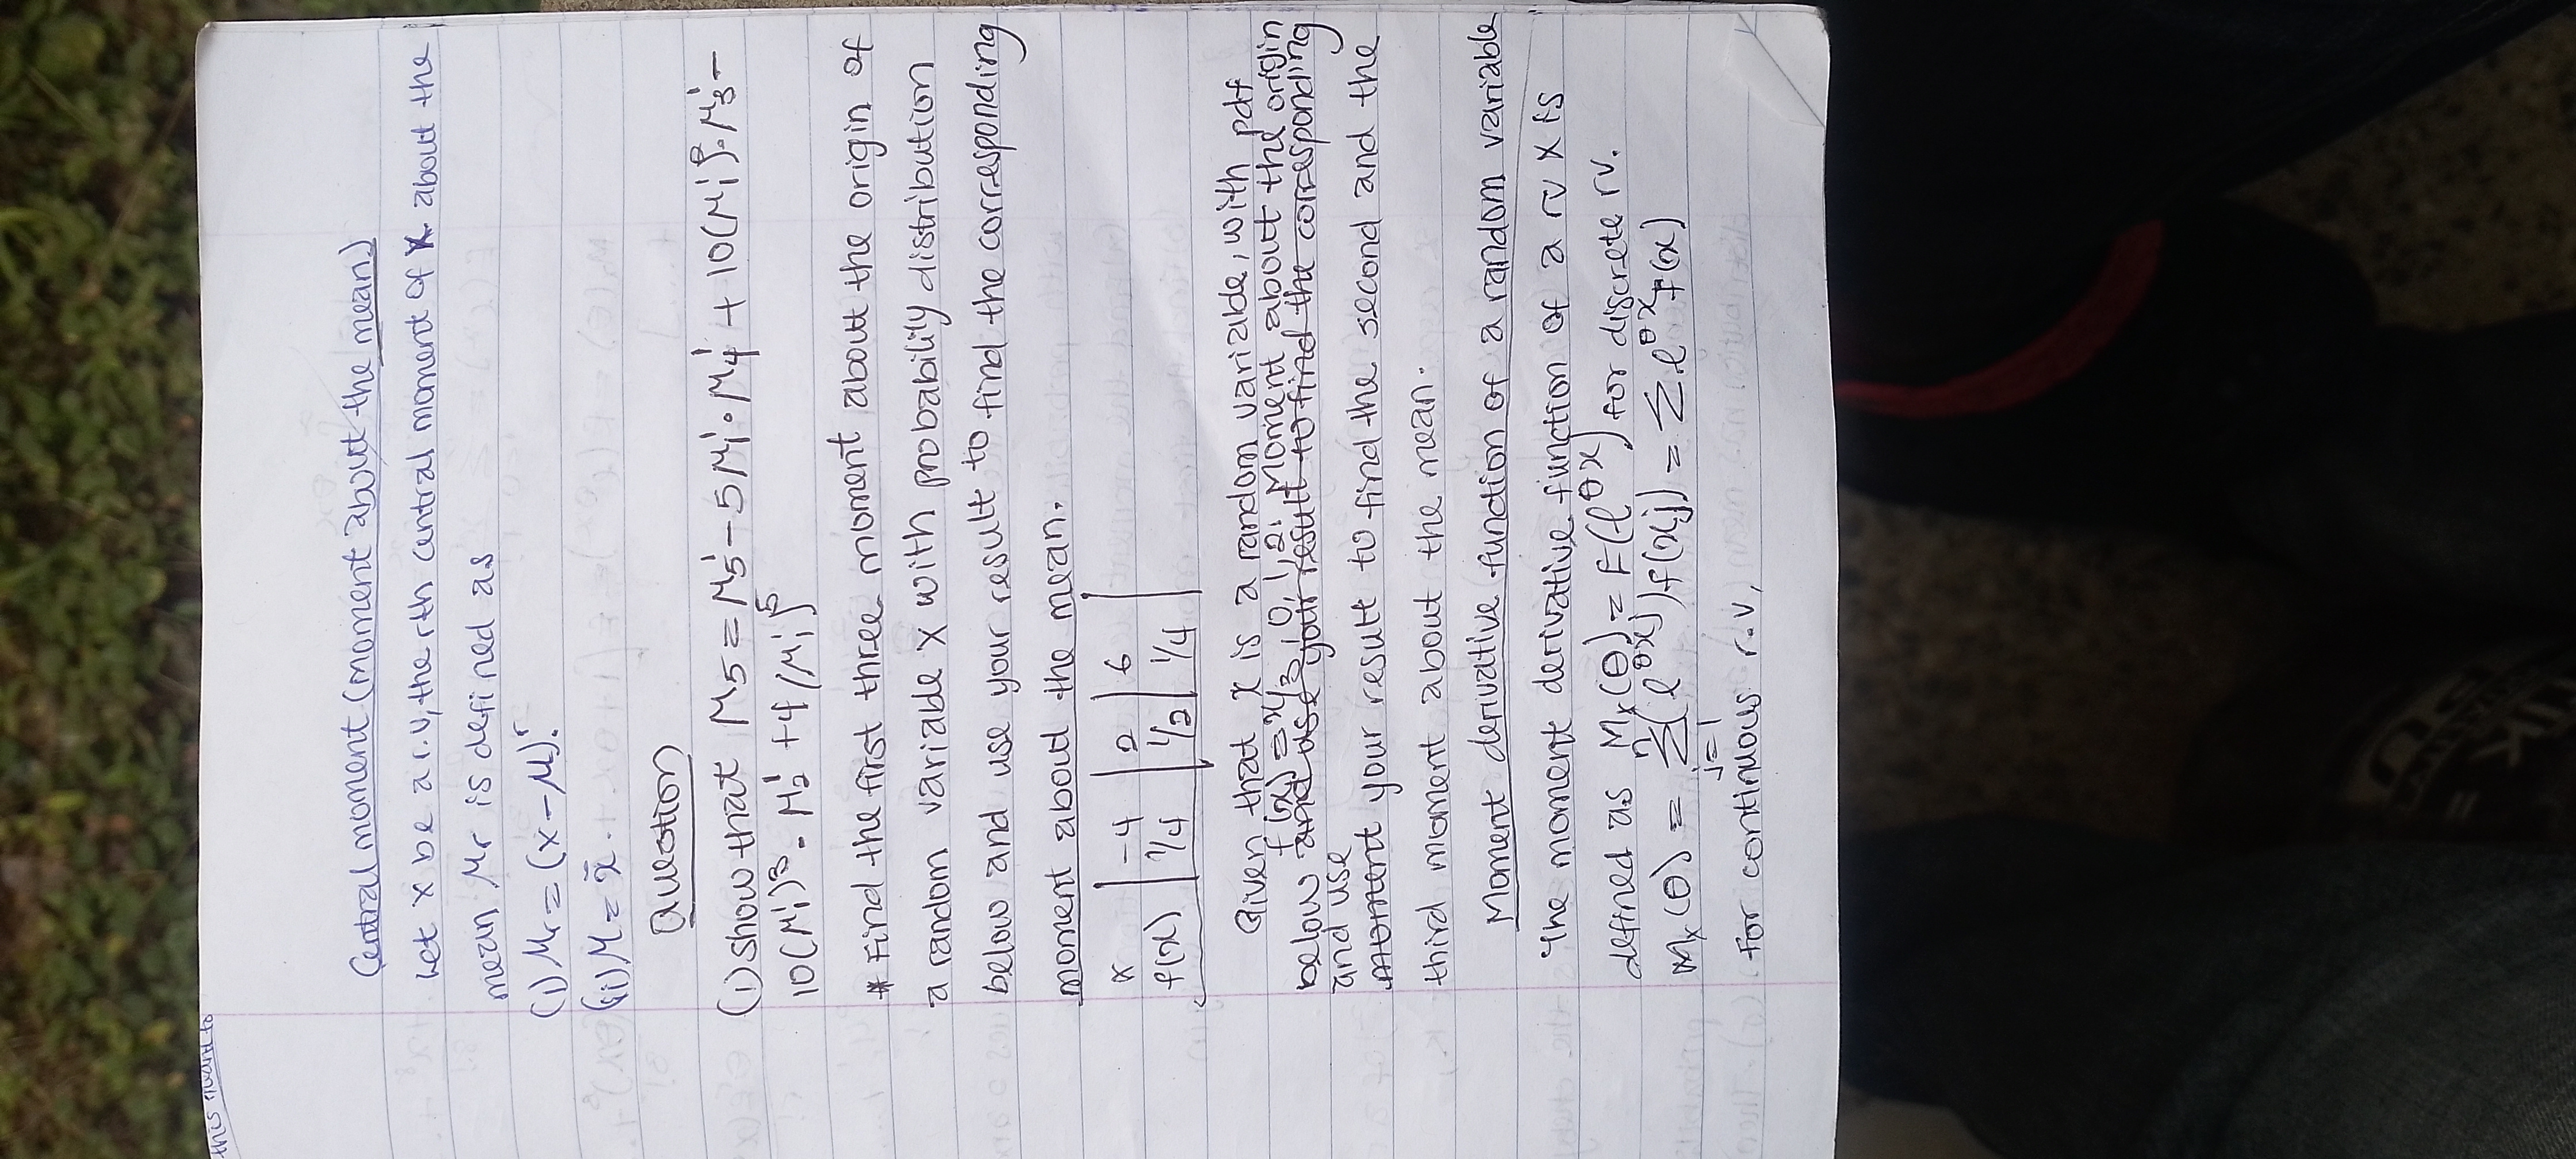 this want to
Central moment (moment about the mean)
Let x be a r.v, the rth central moment of X about the
mean μr is defined as
(i) μr = (x - μ)^r.
(ii) μ = x̄.
Question
(i) show that μ5 = μ5' - 5μ1' . μ4' + 10(μ1')^2 . μ3' -
10(μ1')^3 . μ2' + 4(μ1')^5
* Find the first three moment about the origin of
a random variable x with probability distribution
below and use your result to find the corresponding
moment about the mean.
x | -4 | 2 | 6 |
f(x) | 1/4 | 1/2 | 1/4 |
Given that x is a random variable, with pdf
f(x) = x/3, 0, 1, 2. Moment about the origin
below and use your result to find the corresponding
and use
moment your result to find the second and the
third moment about the mean.
Moment derivative function of a random variable
The moment derivative function of a rv X is
defined as Mx(θ) = E(e^θx) for discrete rv.
Mx(θ) = Σ_{j=1}^{n} (e^θxj) f(xj) = Σ e^θx f(x)
For continuous r.v,